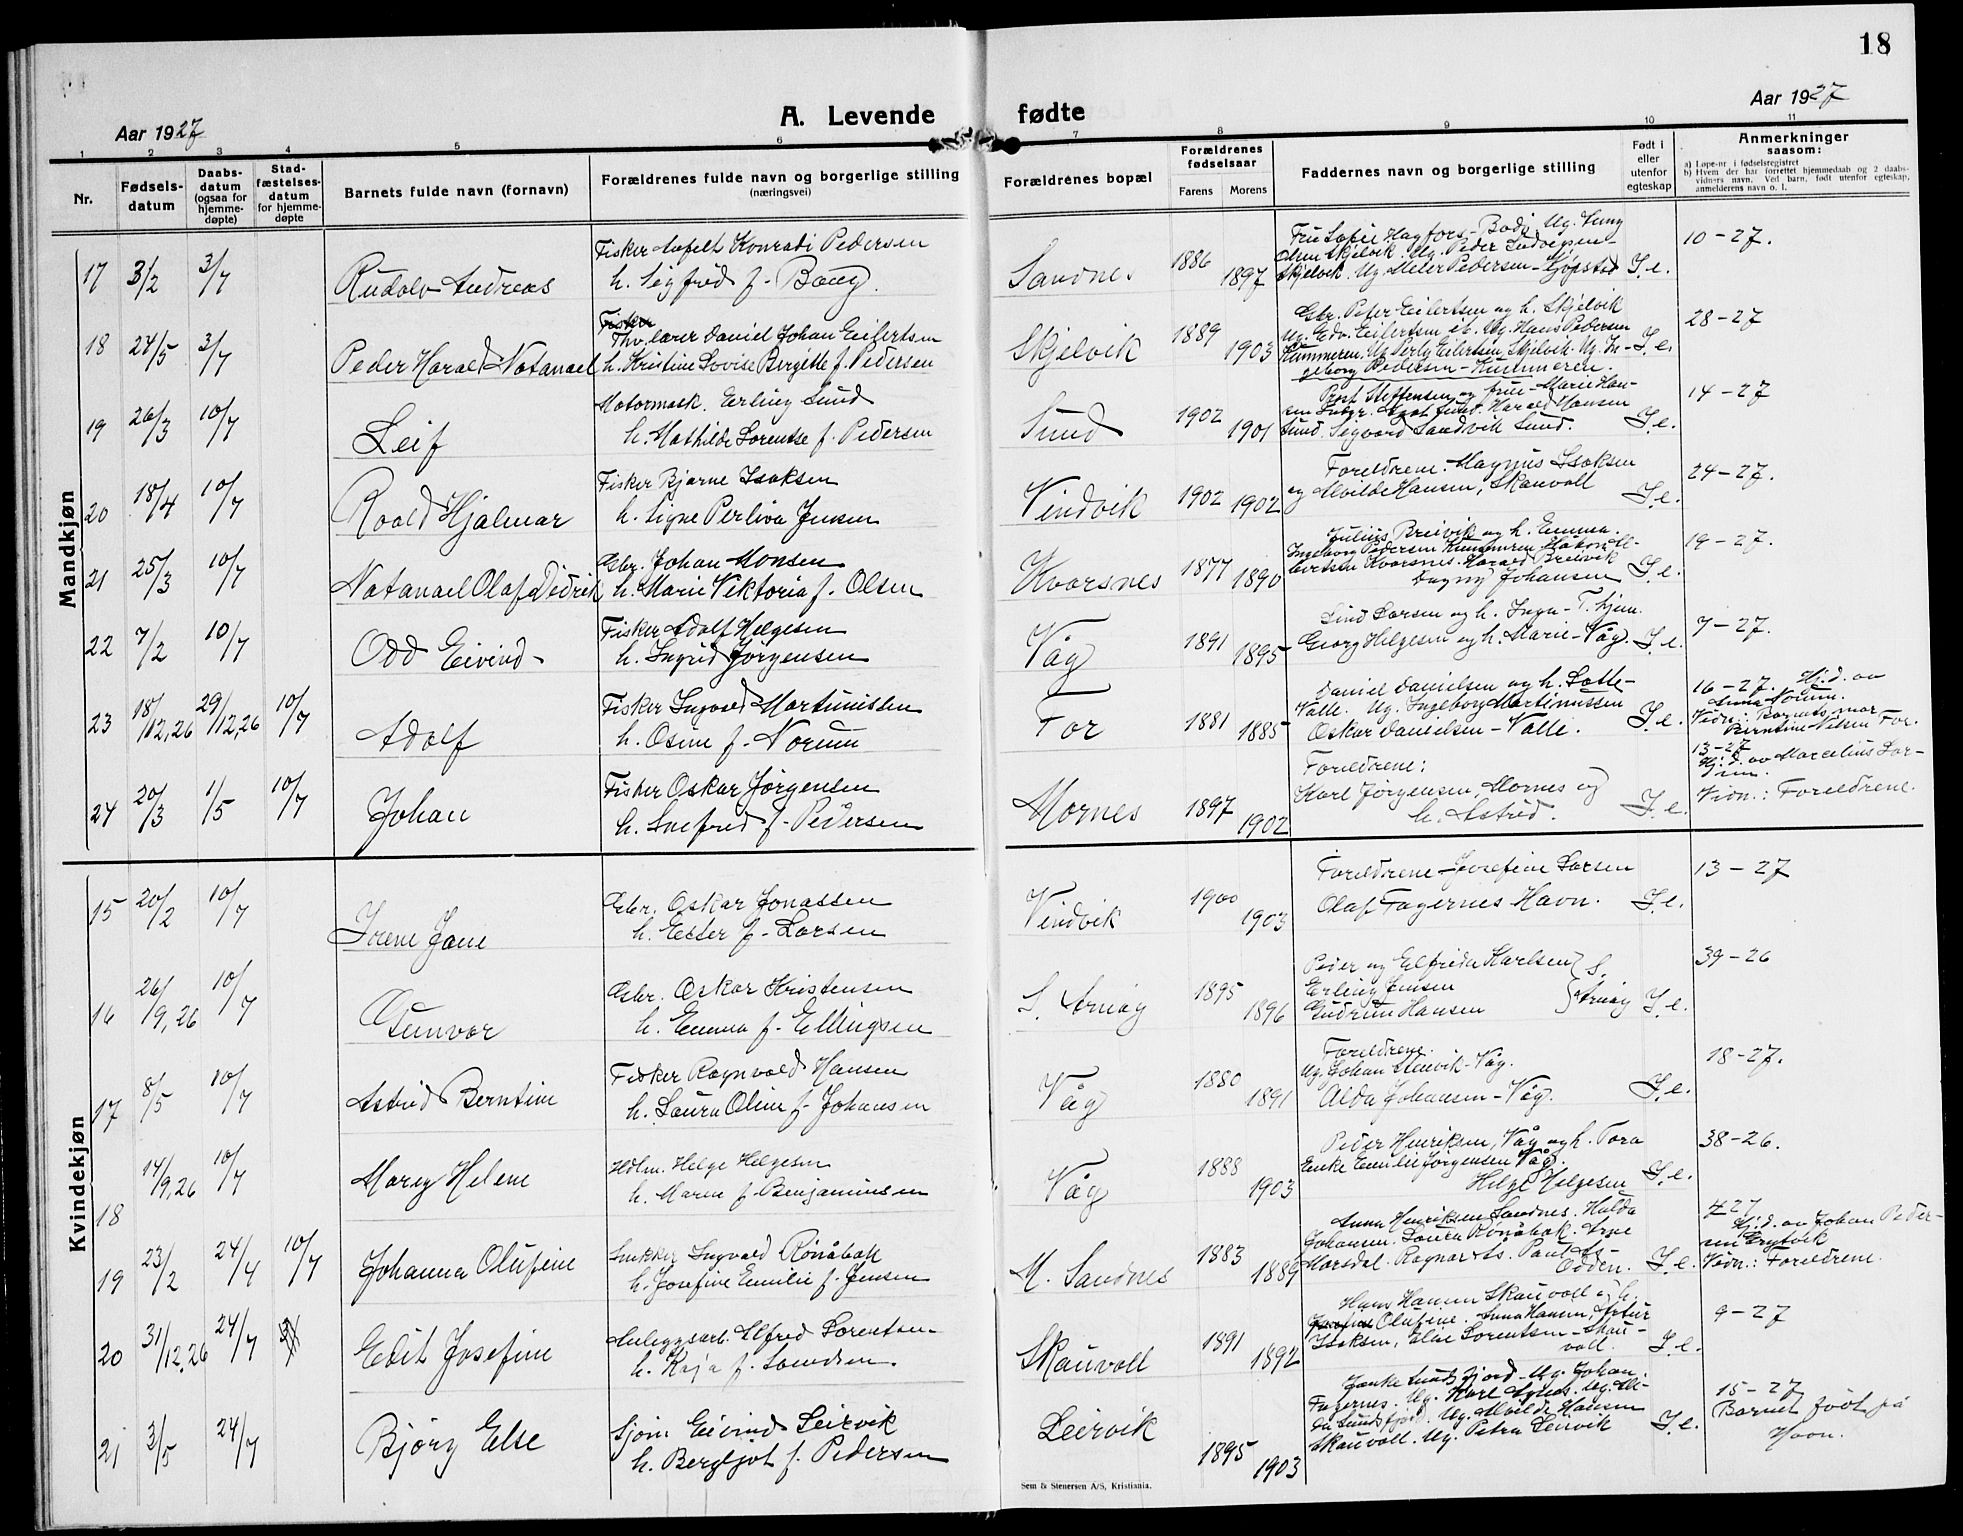 18
Aar 1927
A. Levende fødte
Aar 1927
1 2 3 4 5 6 7 8 9 10 11
Nr.
Fødsels-datum
Daabs-datum (ogsaa for hjemme-døpte)
Stad-fæstelses-datum for hjemme-døpte
Barnets fulde navn (fornavn)
Forældrenes fulde navn og borgerlige stilling (næringsvei)
Forældrenes bopæl
Forældrenes fødselsaar
Farens Morens
Faddernes navn og borgerlige stilling
Født i eller utenfor egteskap
Anmerkninger saasom:
a) Løpe-nr. i fødselsregistret
b) Hvem der har forrettet hjemmedaab og 2 daabs-vidners navn. Ved barn, født utenfor egteskap, anmelderens navn o. l.
Mandkjøn
17 3/2 3/7 Rudolv Andreas
Fisker Konradi Pedersen
h. Sigfrid f.
Sandnes 1886 1897
Skjelvik. Ug. Pedersen - Gjøpstad I.e.
10-27.
18 24/5 3/7 Peder Harald Natanael
Fisker
Thv. lærer Daniel Johan Eilertsen
h. Kristine Lovise Bergitte f. Pedersen
Skjelvik 1889 1903
Gbr. Peter Eilertsen og h. Skjelvik
Ug. Edv. Eilertsen ib. Ug. Hans Pedersen
Kummeren. Ug. Perly Eilertsen, Skjelvik. Ug. In- I.e.
geborg Pedersen - Kummeren.
28-27
19 26/3 10/7 Leif
Motormask. Erling Sund
h. Mathilde Lorentse f. Pedersen
Sund 1902 1901
Prost Steffensen og frue - Marie Han-
Sund. Sigvard Sandvik Sund. I.e.
14-27
20 18/4 10/7 Roald Hjalmar
Fisker Bjarne Isaksen
h. Signe Perliva Jensen
Vindvik 1902 1902
Foreldrene. Magnus Isaksen
og Alvilde Hansen, Skauvoll I.e.
24-27.
21 25/3 10/7 Natanael Olaf Didrik
Gbr. Johan Monsen
h. Marie Viktoria f. Olsen
Kvarsnes 1877 1890
Julius Breivik og h. Emma.
Ingeborg Pedersen Kummeren Håkon Al-
bertsen Kvarsnes. Harald Breivik
Dagny Johansen I.e.
19-27.
22 7/2 10/7 Odd Eivind
Fisker Adolf Helgesen
h. Ingrid Jørgensen
Våg 1891 1895
Larsen og h. Inga - T.hjem.
Georg Helgesen og h. Marie - Våg. I.e.
7-27.
23 18/12,26 29/12,26 10/7 Adolf
Fisker Ingvald Martinussen
h. Osine f. Norum
Tor 1881 1885
Daniel Danielsen og h. Lotte -
Valle. Ug. Ingeborg Martinussen
Oskar Danielsen - Valle. I.e.
16-27. Hj.d. av
Anna Norum.
Vidn.: Barnets mor
Berntine Nilsen Tor.
24 20/3 1/5 10/7 Johan
Fisker Oskar Jørgensen
h. Snefrid f. Pedersen
Mornes 1897 1902
Foreldrene:
Karl Jørgensen, Mornes og
h. Astrid. I.e.
13-27
Hj.d. av Marcelius Lar-
sen.
Vidn.: Foreldrene.
Kvindekjøn
15 20/2 10/7 Irene Jane
Gbr. Oskar Jonassen
h. Ester f. Larsen
Vindvik 1900 1903
Foreldrene - Josefine Larsen
Olaf Fagernes Havn. I.e.
13-27
16 26/9,26 10/7 Gunvor
Gbr. Oskar Kristensen
h. Emma f. Ellingsen
S. Arnøy 1895 1896
Peder og Elfrida Karlsen } S.
Erling Jensen
Gudrun Hansen } Arnøy I.e.
39-26
17 8/5 10/7 Astrid Berntine
Fisker Ragnvald Hansen
h. Laura Oline f. Johansen
Våg 1880 1891
Foreldrene.
Ug. Johan Stenvik - Våg.
Alda Johansen - Våg. I.e.
18-27.
18 14/9,26 10/7 Mary Helene
Hdlm. Helge Helgesen
h. Maren f. Benjaminsen
Våg 1888 1903
Peder Henriksen, Våg og h. Tora
Enke Emilie Jørgensen Våg.
Helge Helgesen I.e.
38-26.
19 23/2 24/4 10/7 Johanna Olufine
Snekker Ingvald Rønåbak
h. Josefine Emilie f. Jensen
N. Sandnes 1883 1889
Anna Henriksen Sandnes. Hulda
Johansen. Laura Rønåbak. Arne
Marsdal. Ragnar As. Paul As-
Odden. I.e.
27
Hj.d. av Johan Peder-
sen
Vidn.: Foreldrene.
20 31/12,26 24/7 Edit Josefine
Anleggsarb. Alfred Lorentsen
h. Kaja f. Sandsen
Skauvoll 1891 1892
Hans Hansen Skauvoll og h.
Olufine. Anna Hansen, Artur
Isaksen, Elie Lorentsen - Skau-
voll. I.e.
9-27
21 3/5 24/7 Bjørg Else
Sjøm. Eivind Leirvik
h. Bergljot f. Pedersen
Leirvik 1895 1903
Sundsfjord - Ug. Johan
Fagernes. Ug. Karl Ug. Al-
da Sundsfjord. Ug. Alvilde Hansen
Skauvoll. Ug. Petra Leirvik I.e.
15-27
Barnet født på
Havn.
Sem & Stenersen A/S, Kristiania.